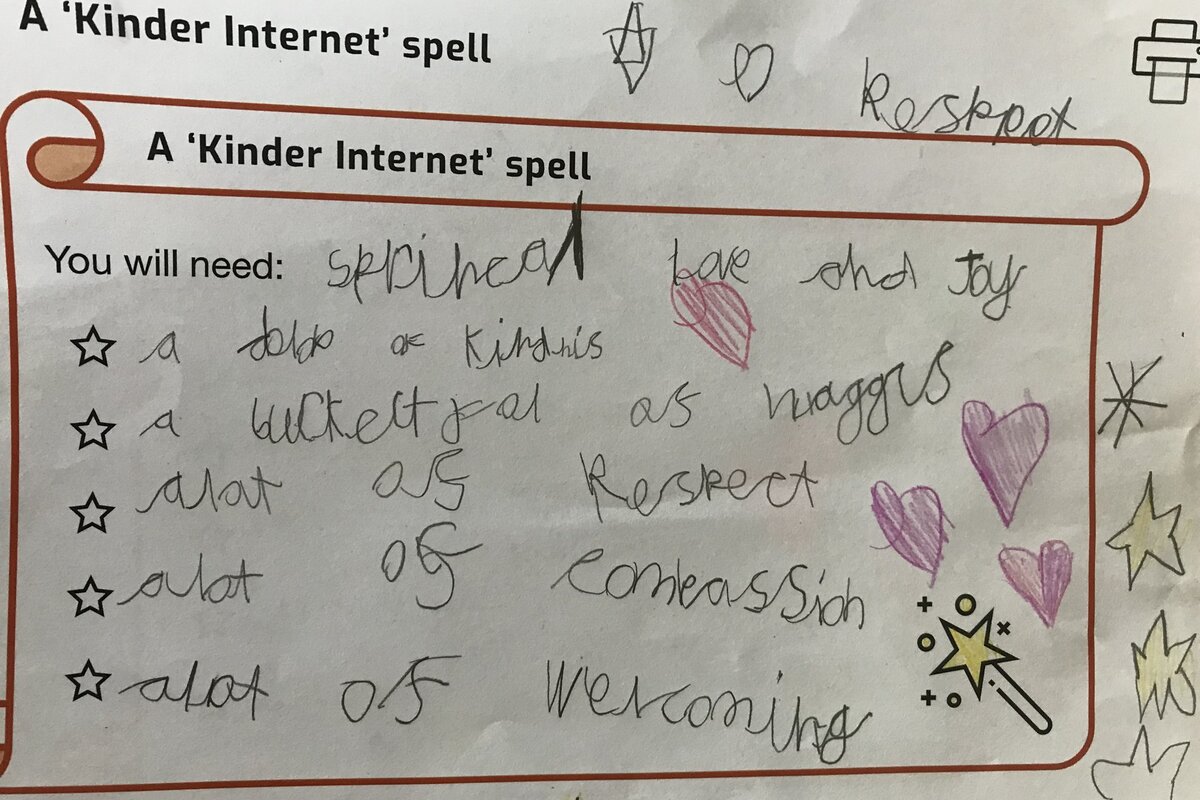 A ‘Kinder Internet’ spell
Reskpot
A ‘Kinder Internet’ spell
You will need: Love and Joy
a of Kindnis
a bucketful of huggus
alot of Respect
alot of compassion
alot of Welcoming